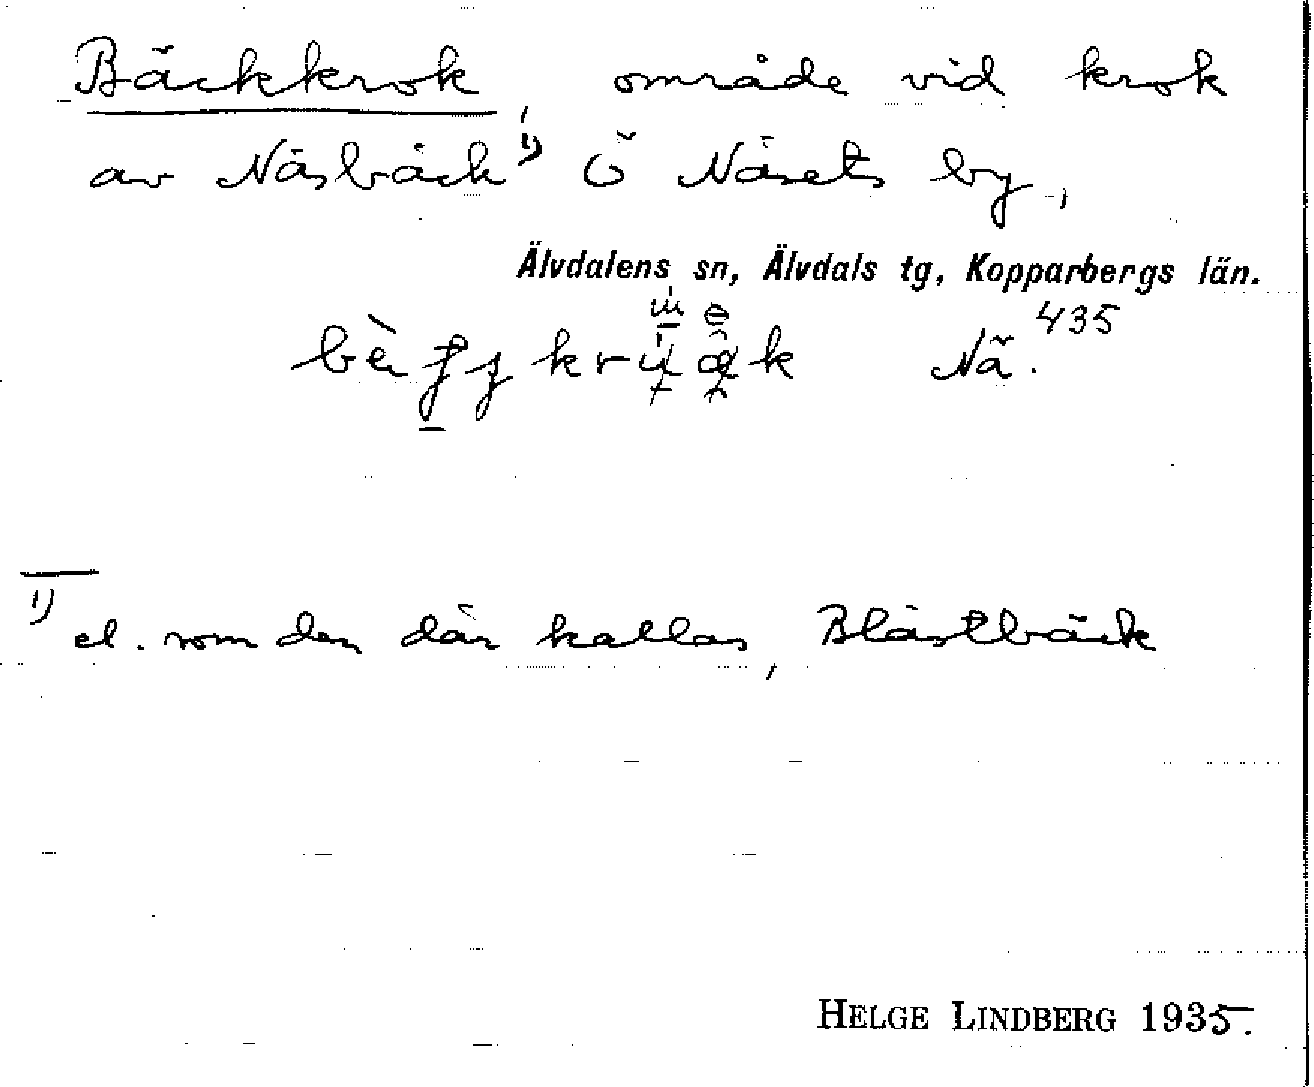 Bäckkrok, område vid krok
av Näsbäck ¹) Ö Näsets by,
Älvdalens sn, Älvdals tg, Kopparbergs län.
Nä. 435
¹) el. som den där kallas, Blästbäck
HELGE LINDBERG 1935.